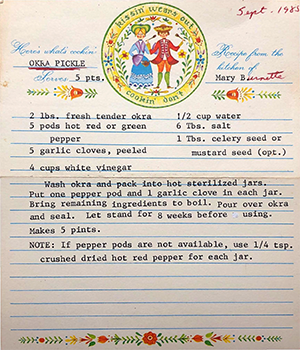 Sept. 1985
kissin' wears out
cookin' don't
Here's what's cookin'
OKRA PICKLE
Serves 5 pts.
Recipe from the
kitchen of
Mary Burnette
2 lbs. fresh tender okra
5 pods hot red or green
pepper
5 garlic cloves, peeled
4 cups white vinegar
1/2 cup water
6 Tbs. salt
1 Tbs. celery seed or
mustard seed (opt.)
Wash okra and pack into hot sterilized jars.
Put one pepper pod and 1 garlic clove in each jar.
Bring remaining ingredients to boil. Pour over okra
and seal. Let stand for 8 weeks before using.
Makes 5 pints.
NOTE: If pepper pods are not available, use 1/4 tsp.
crushed dried hot red pepper for each jar.